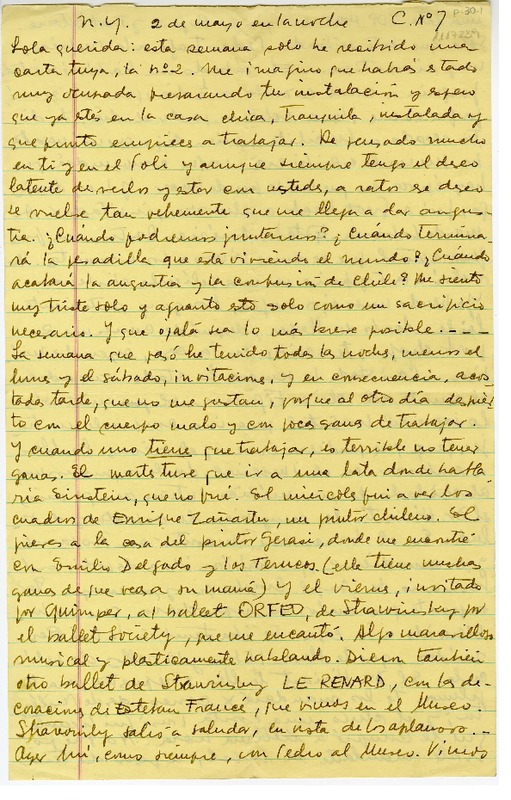 N.Y. 2 de mayo en la noche C. Nº 7
P-30-1
Lola querida: esta semana solo he recibido una
carta tuya, la nº 2. Me imagino que habrás estado
muy ocupada preparando tu instalación y espero
que ya estés en la casa chica, tranquila, instalada y
que pronto empieces a trabajar. He pensado mucho
en ti y en el Poli y aunque siempre tengo el deseo
latente de verlos y estar con ustedes, a ratos ese deseo
se vuelve tan vehemente que me llega a dar angus-
tia. ¿Cuándo podremos juntarnos? ¿Cuándo termina-
rá la pesadilla que está viviendo el mundo? ¿Cuándo
acabará la angustia y la confusión de Chile? Me siento
muy triste solo y aguanto esto solo como un sacrificio
necesario. Y que ojalá sea lo más breve posible. ----
La semana que pasó he tenido todas las noches, menos el
lunes y el sábado, invitaciones, y en consecuencia, acos-
tadas tarde, que no me gustan, porque al otro día despier-
to con el cuerpo malo y con pocas ganas de trabajar.
Y cuando uno tiene que trabajar, es terrible no tener
ganas. El martes tuve que ir a una lata donde habla-
ría Einstein, que no fué. El miércoles fui a ver los
cuadros de Enrique Zañartu, un pintor chileno. El
jueves a la casa del pintor Gerasi, donde me encontré
con Emilio Delgado y los Temcos (ella tiene muchas
ganas de que veas a su mamá) Y el viernes, invitado
por Quimper, al ballet ORFEO, de Strawinsky por
el Ballet Society, que me encantó. Algo maravilloso
musical y plasticamente hablando. Dieron también
otro ballet de Strawinsky LE RENARD, con las de-
coraciones de Esteban Francé, que vimos en el Museo.
Strawinsky salió a saludar, en vista de los aplausos. --
Ayer fuí, como siempre, con Pedro al Museo. Vimos